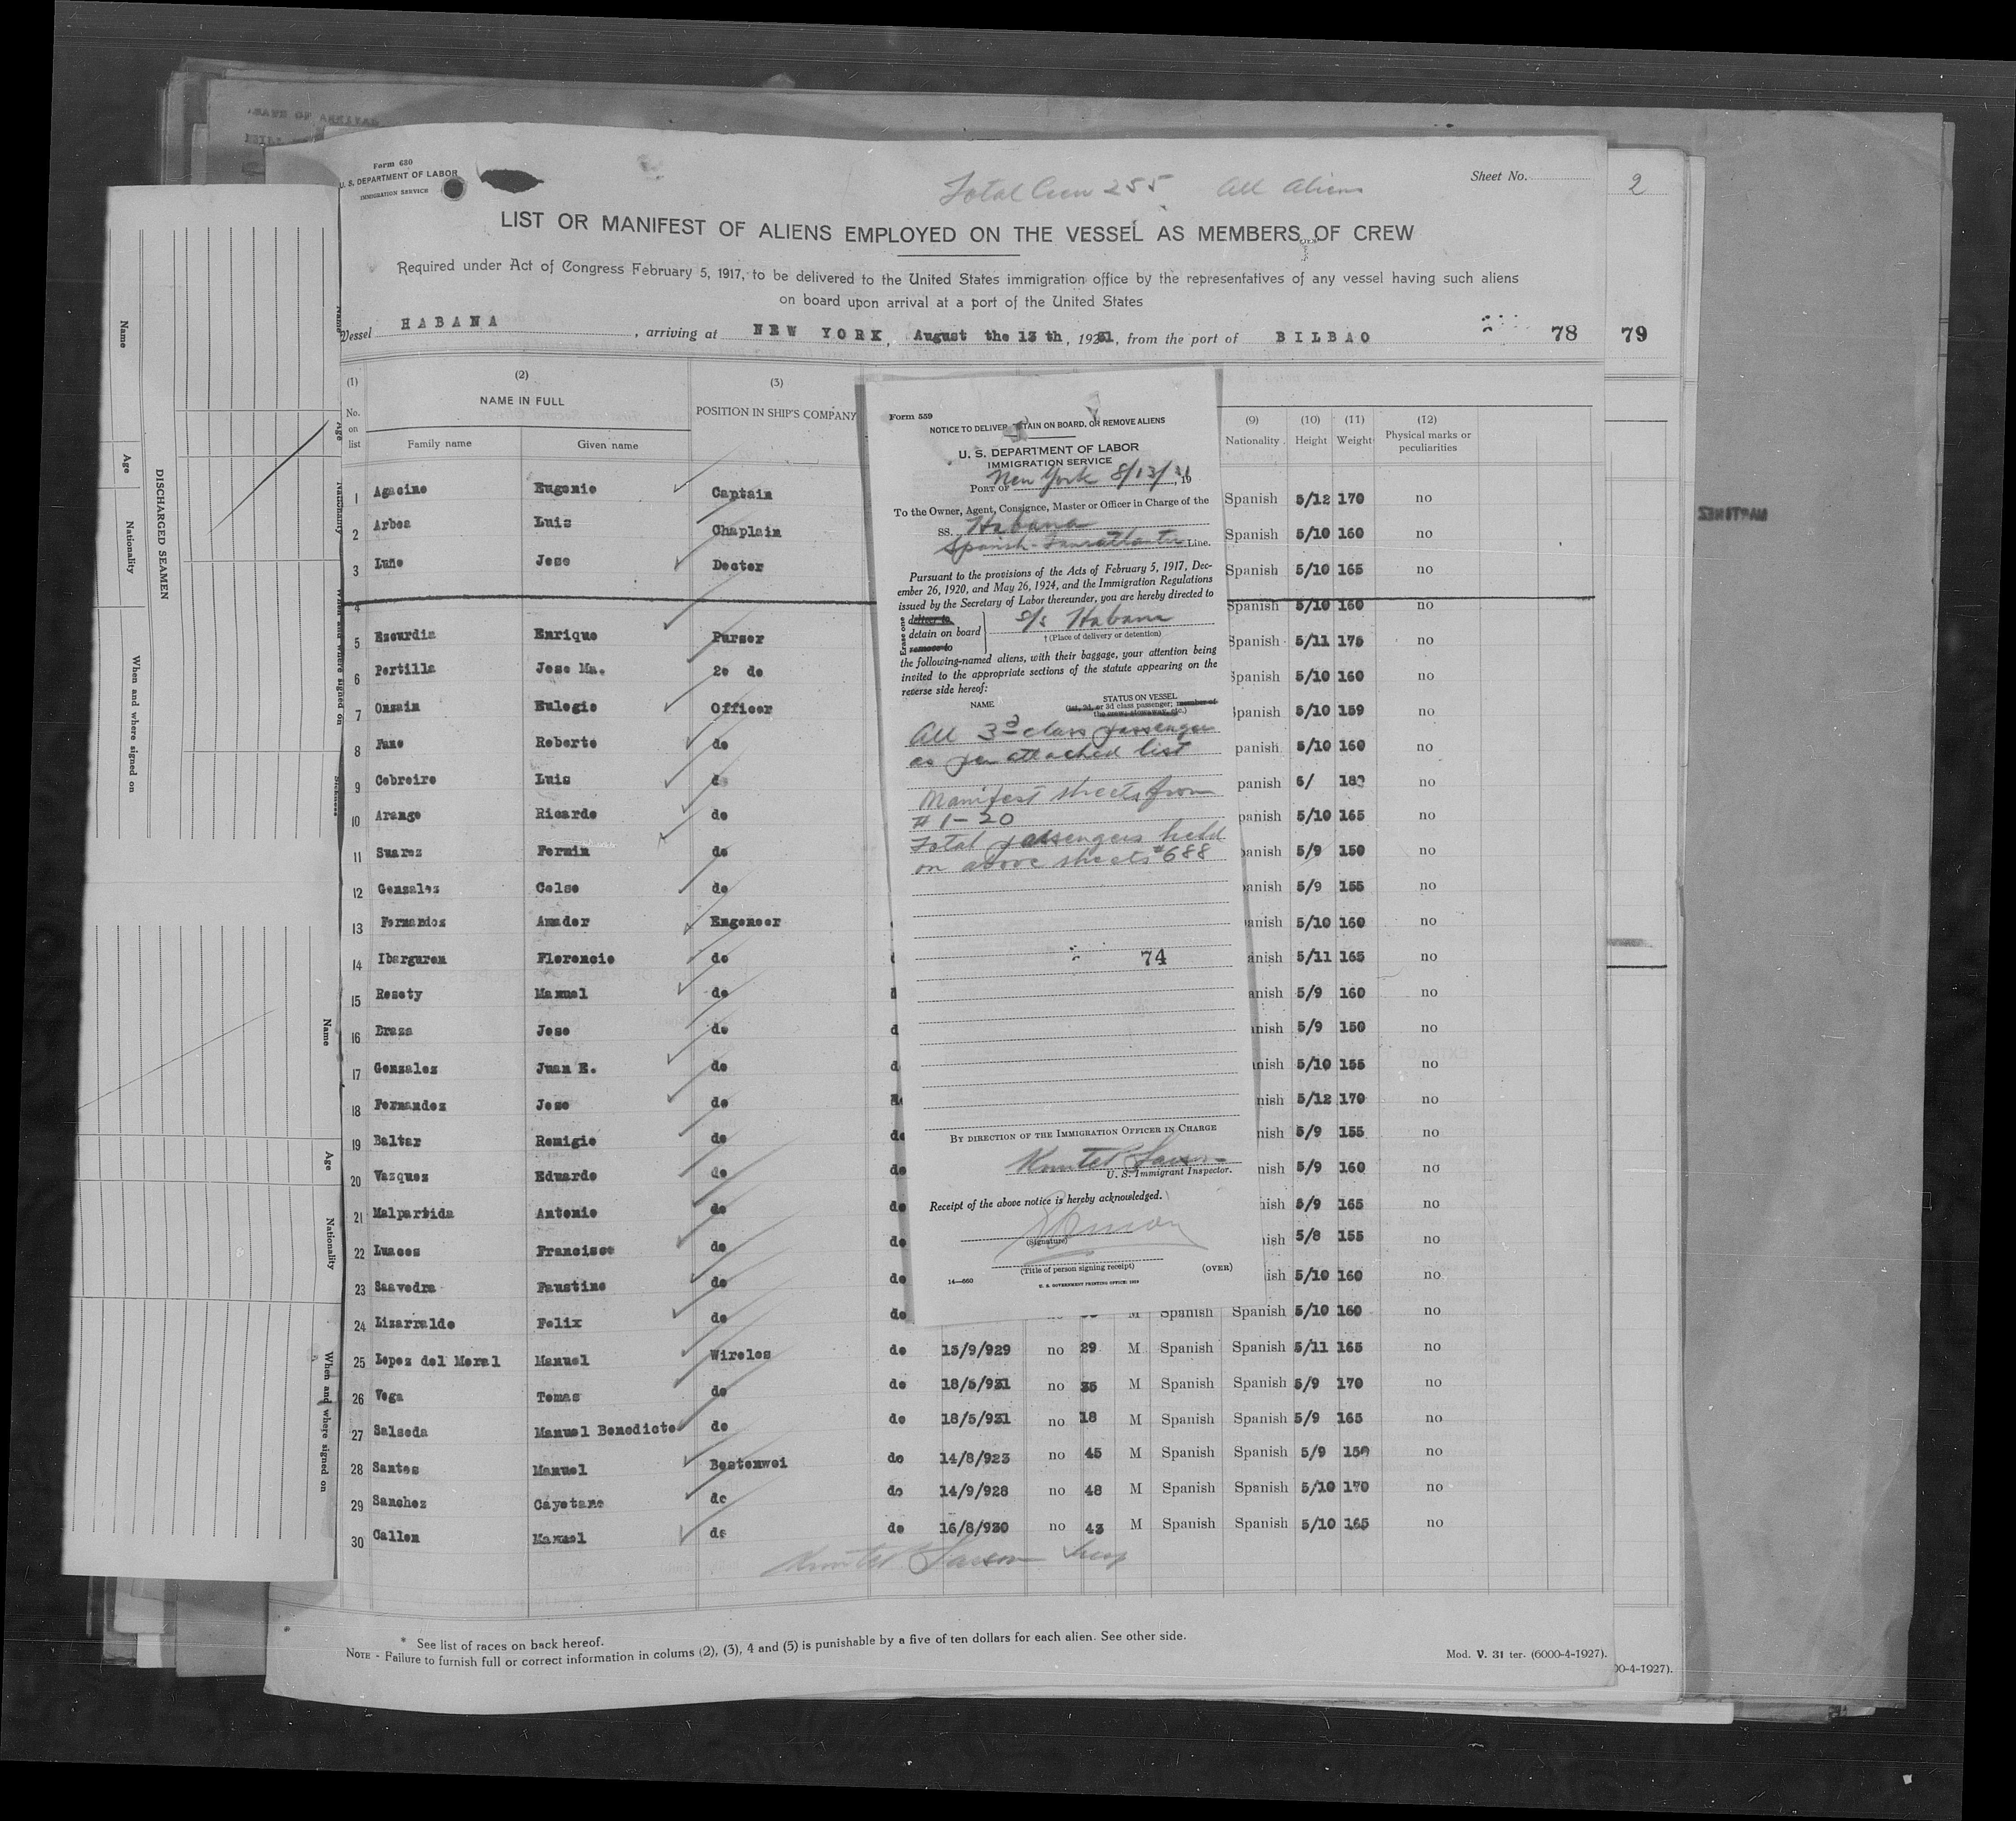 Form 680
U. S. DEPARTMENT OF LABOR
IMMIGRATION SERVICE
Total Crew 255 All Aliens
Sheet No.
2
LIST OR MANIFEST OF ALIENS EMPLOYED ON THE VESSEL AS MEMBERS OF CREW
Required under Act of Congress February 5, 1917, to be delivered to the United States immigration office by the representatives of any vessel having such aliens
on board upon arrival at a port of the United States
Vessel HABANA, arriving at NEW YORK, August the 13 th, 1931, from the port of BILBAO 78 79
(1) (2) (3) (9) (10) (11) (12)
No. on list NAME IN FULL POSITION IN SHIP'S COMPANY Nationality Height Weight Physical marks or peculiarities
Family name Given name
1 Agacino Eugenio Captain Spanish 5/12 170 no
2 Arbea Luis Chaplain Spanish 5/10 160 no
3 Luño Jose Doctor Spanish 5/10 165 no
4 Spanish 5/10 160 no
5 Ezcurdia Enrique Purser Spanish 5/11 175 no
6 Portilla Jose Ma. 2o do Spanish 5/10 160 no
7 Onzain Eulogio Officer Spanish 5/10 159 no
8 Roberto do panish 5/10 160 no
9 Cobreiro Luis d panish 6/ no
10 Arango Ricardo do panish 5/10 165 no
11 Suarez Fermin do panish 5/9 150 no
12 Gonzalez Celso do panish 5/9 155 no
13 Amador Engeneer anish 5/10 160 no
14 Ibarguren Florencio do anish 5/11 165 no
15 Rosety Manuel do anish 5/9 160 no
16 Braza Jose do d nish 5/9 150 no
17 Gonzalez Juan E. do d nish 5/10 155 no
18 Fernandez Jose do nish 5/12 170 no
19 Baltar Remigio do do nish 5/9 155 no
20 Vazquez Eduardo do do nish 5/9 160 no
21 Malpartida Antonio do do nish 5/9 165 no
22 Luaces Francisco do do ish 5/8 155 no
23 Saavedra Faustino do do ish 5/10 160 no
24 Lizarralde Felix do do M Spanish Spanish 5/10 160 no
25 Lopez del Moral Manuel Wireles do 15/9/929 no 29 M Spanish Spanish 5/11 165 no
26 Vega Tomas do do 18/5/931 no 35 M Spanish Spanish 5/9 170 no
27 Salseda Manuel Benedicto do do 18/5/931 no 18 M Spanish Spanish 5/9 165 no
28 Santos Manuel Bostonwei do 14/8/923 no 45 M Spanish Spanish 5/9 150 no
29 Sanchez Cayetano do do 14/9/928 no 48 M Spanish Spanish 5/10 170 no
30 Callon Manuel do do 16/8/930 no 43 M Spanish Spanish 5/10 165 no
* See list of races on back hereof.
NOTE - Failure to furnish full or correct information in colums (2), (3), 4 and (5) is punishable by a five of ten dollars for each alien. See other side.
Mod. V. 31 ter. (6000-4-1927).
00-4-1927).
Form 559
NOTICE TO DELIVER, DETAIN ON BOARD, OR REMOVE ALIENS
U. S. DEPARTMENT OF LABOR
IMMIGRATION SERVICE
PORT OF New York 8/13/31, 19
To the Owner, Agent, Consignee, Master or Officer in Charge of the
SS. Habana
Spanish-Transatlantic Line.
Pursuant to the provisions of the Acts of February 5, 1917, Dec-
ember 26, 1920, and May 26, 1924, and the Immigration Regulations
issued by the Secretary of Labor thereunder, you are hereby directed to
Erase one
deliver to
detain on board S/S Habana
remove to
† (Place of delivery or detention)
the following-named aliens, with their baggage, your attention being
invited to the appropriate sections of the statute appearing on the
reverse side hereof:
NAME
STATUS ON VESSEL
(1st, 2d, or 3d class passenger; member of
the crew; stowaway, etc.)
All 3d class passenger
as per attached list
Manifest sheets from
# 1-20
Total passengers held
on above sheets #688
74
BY DIRECTION OF THE IMMIGRATION OFFICER IN CHARGE
U. S. Immigrant Inspector.
Receipt of the above notice is hereby acknowledged.
(Signature)
(Title of person signing receipt)
(OVER)
14—660
U. S. GOVERNMENT PRINTING OFFICE: 1929
DISCHARGED SEAMEN
Name
Age
Nationality
When and where signed on
Name
Age
Nationality
When and where signed on
MARTINEZ